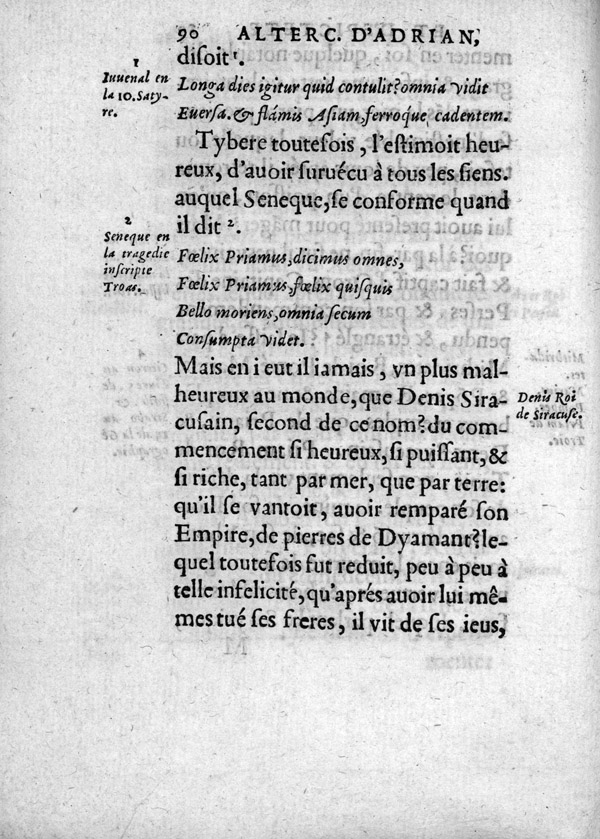 90 ALTERC. D'ADRIAN,
disoit¹.
1
Iuuenal en
la 10. Saty-
re.
Longa dies igitur quid contulit? omnia vidit
Euersa. & flámis Asiam, ferroque cadentem.
Tybere toutefois, l'estimoit heu-
reux, d'auoir suruécu à tous les siens.
auquel Seneque, se conforme quand
il dit ².
2
Seneque en
la tragedie
inscripte
Troas.
Fœlix Priamus, dicimus omnes,
Fœlix Priamus, fœlix quisquis
Bello moriens, omnia secum
Consumpta videt.
Mais en i eut il iamais, vn plus mal-
heureux au monde, que Denis Sira-
cusain, second de ce nom? du com-
mencement si heureux, si puissant, &
si riche, tant par mer, que par terre:
qu'il se vantoit, auoir remparé son
Empire, de pierres de Dyamant? le-
quel toutefois fut reduit, peu à peu à
telle infelicité, qu'aprés auoir lui mê-
mes tué ses freres, il vit de ses ieus,
Denis Roi
de Siracuse.